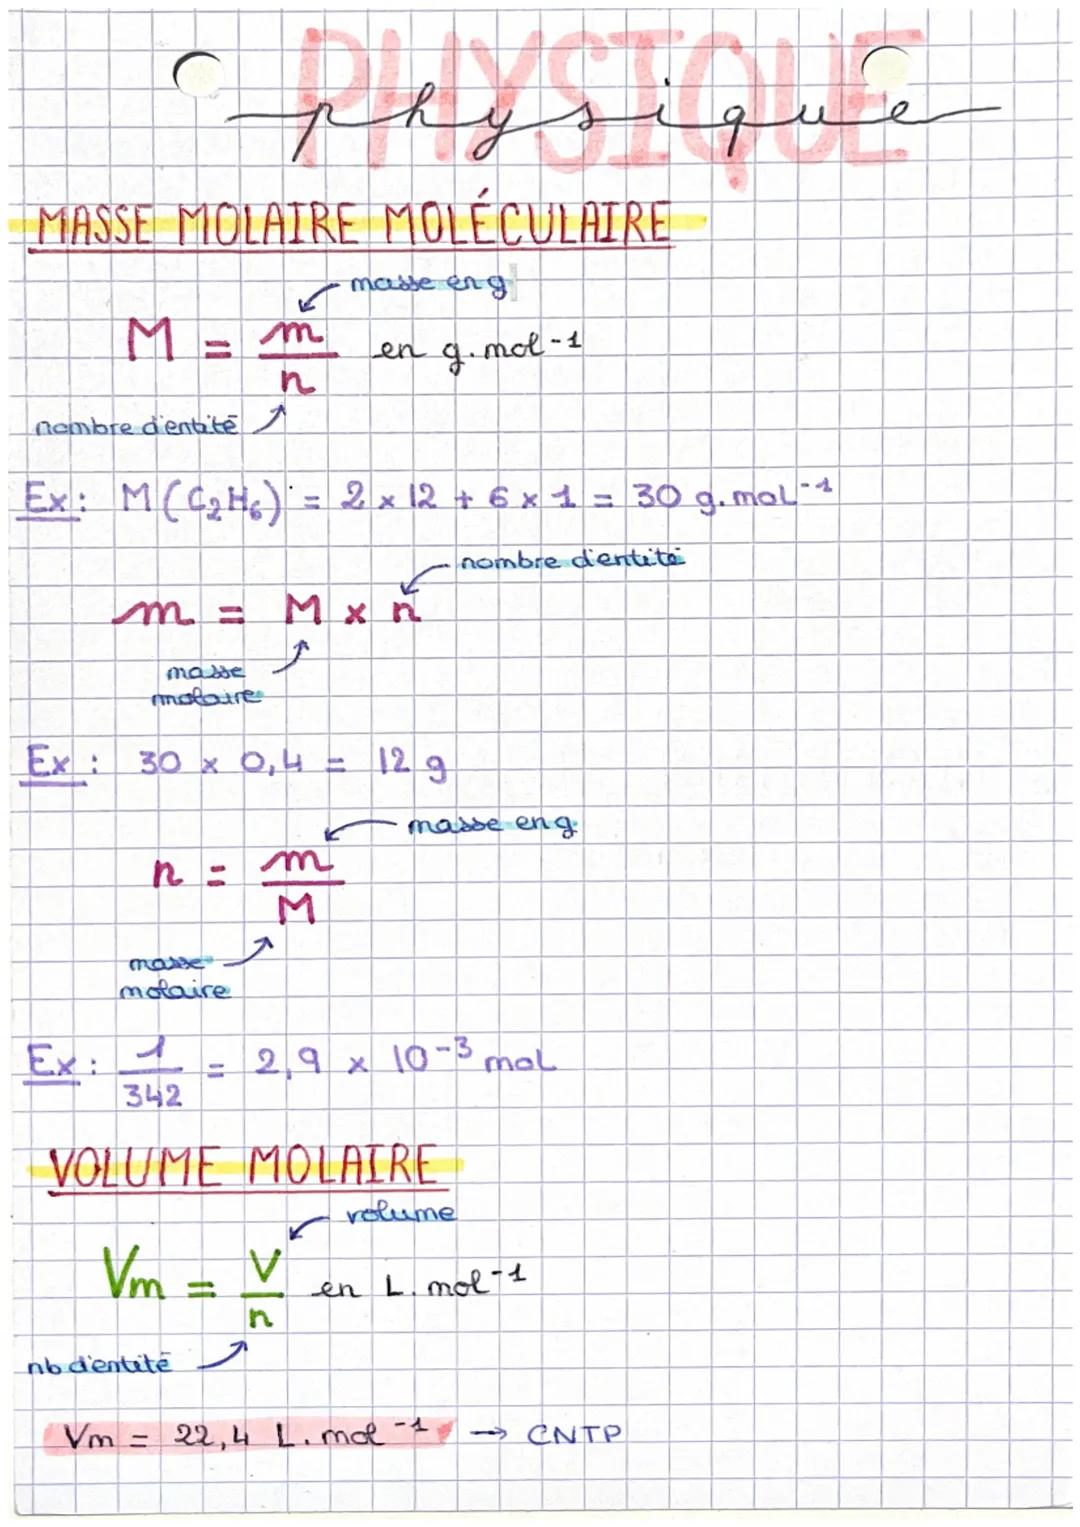 PHYSIQUE
physique
MASSE MOLAIRE MOLÉCULAIRE
masse en g
M = m/n en g.mol-1
nombre d'entité
Ex: M(C2H6) = 2 x 12 + 6 x 1 = 30 g.mol-1
nombre d'entité
m = M x n
masse
molaire
Ex: 30 x 0,4 = 12 g
masse en g
n = m/M
masse
molaire
Ex: 1/342 = 2,9 x 10-3 mol
VOLUME MOLAIRE
volume
Vm = V/n en L.mol-1
nb d'entité
Vm = 22,4 L.mol-1 → CNTP